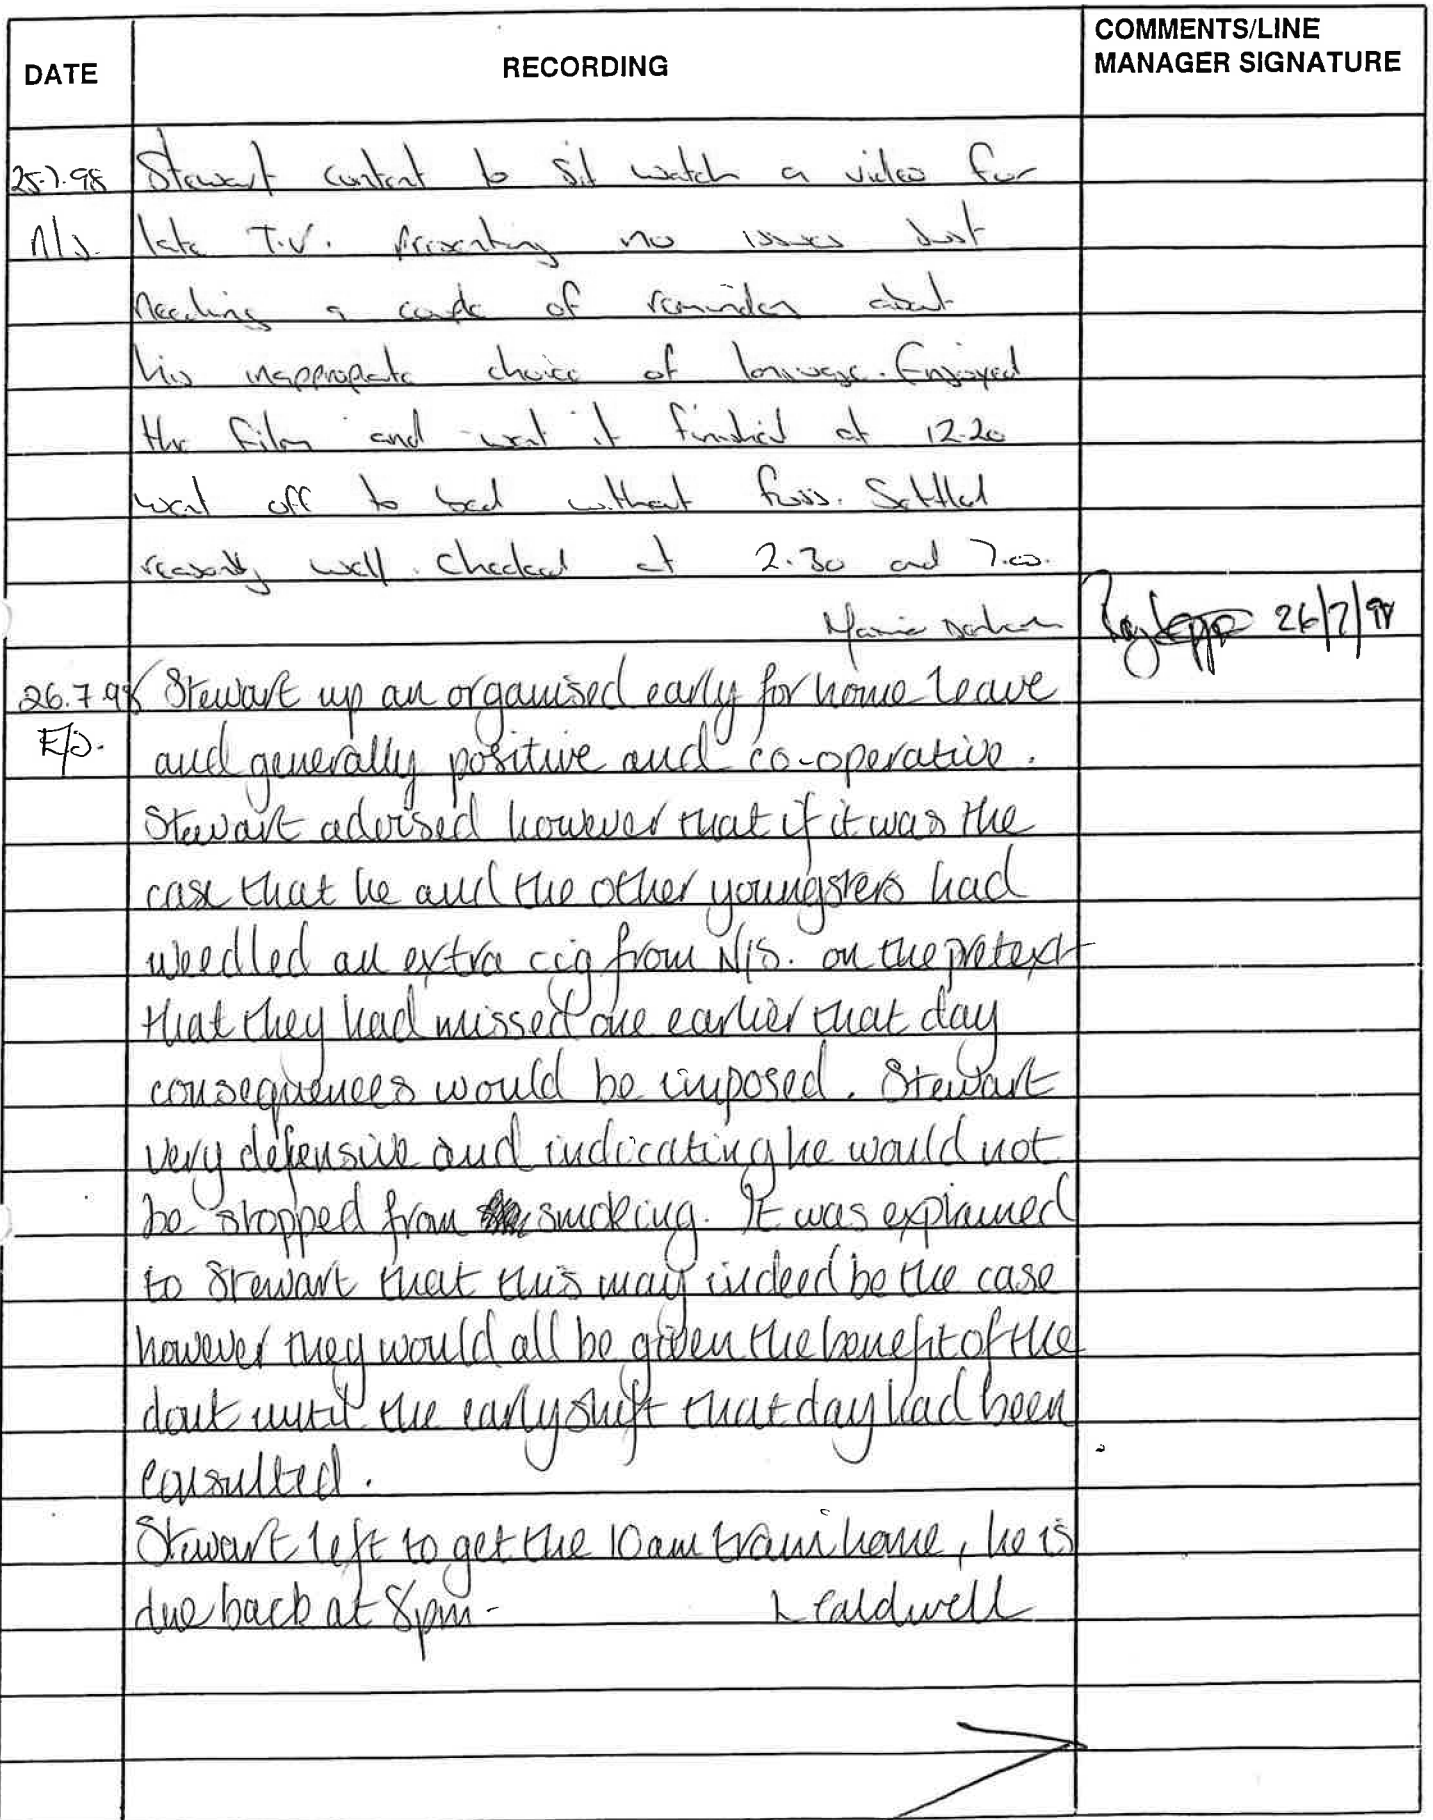 DATE
RECORDING
COMMENTS/LINE
MANAGER SIGNATURE
25.7.98 Stewart content to sit watch a video for
N/S. late T.V. Presenting no issues just
needing a couple of reminders about
his inappropriate choice of language. Enjoyed
the film and went it finished at 12.20
went off to bed without fuss. Settled
reasonly well. Checked at 2.30 and 7.00.
26/7/98
26.7.98 Stewart up an organised early for home leave
E/S. and generally positive and co-operative.
Stewart advised however that if it was the
case that he and the other youngsters had
weedled an extra cig from N/S. on the pretext
that they had missed one earlier that day
consequences would be imposed. Stewart
very defensive and indicating he would not
be stopped from smoking. It was explained
to Stewart that this may indeed be the case
however they would all be given the benefit of the
dout until the early shift that day had been
consulted.
Stewart left to get the 10am train home, he is
due back at 8pm - L Caldwell